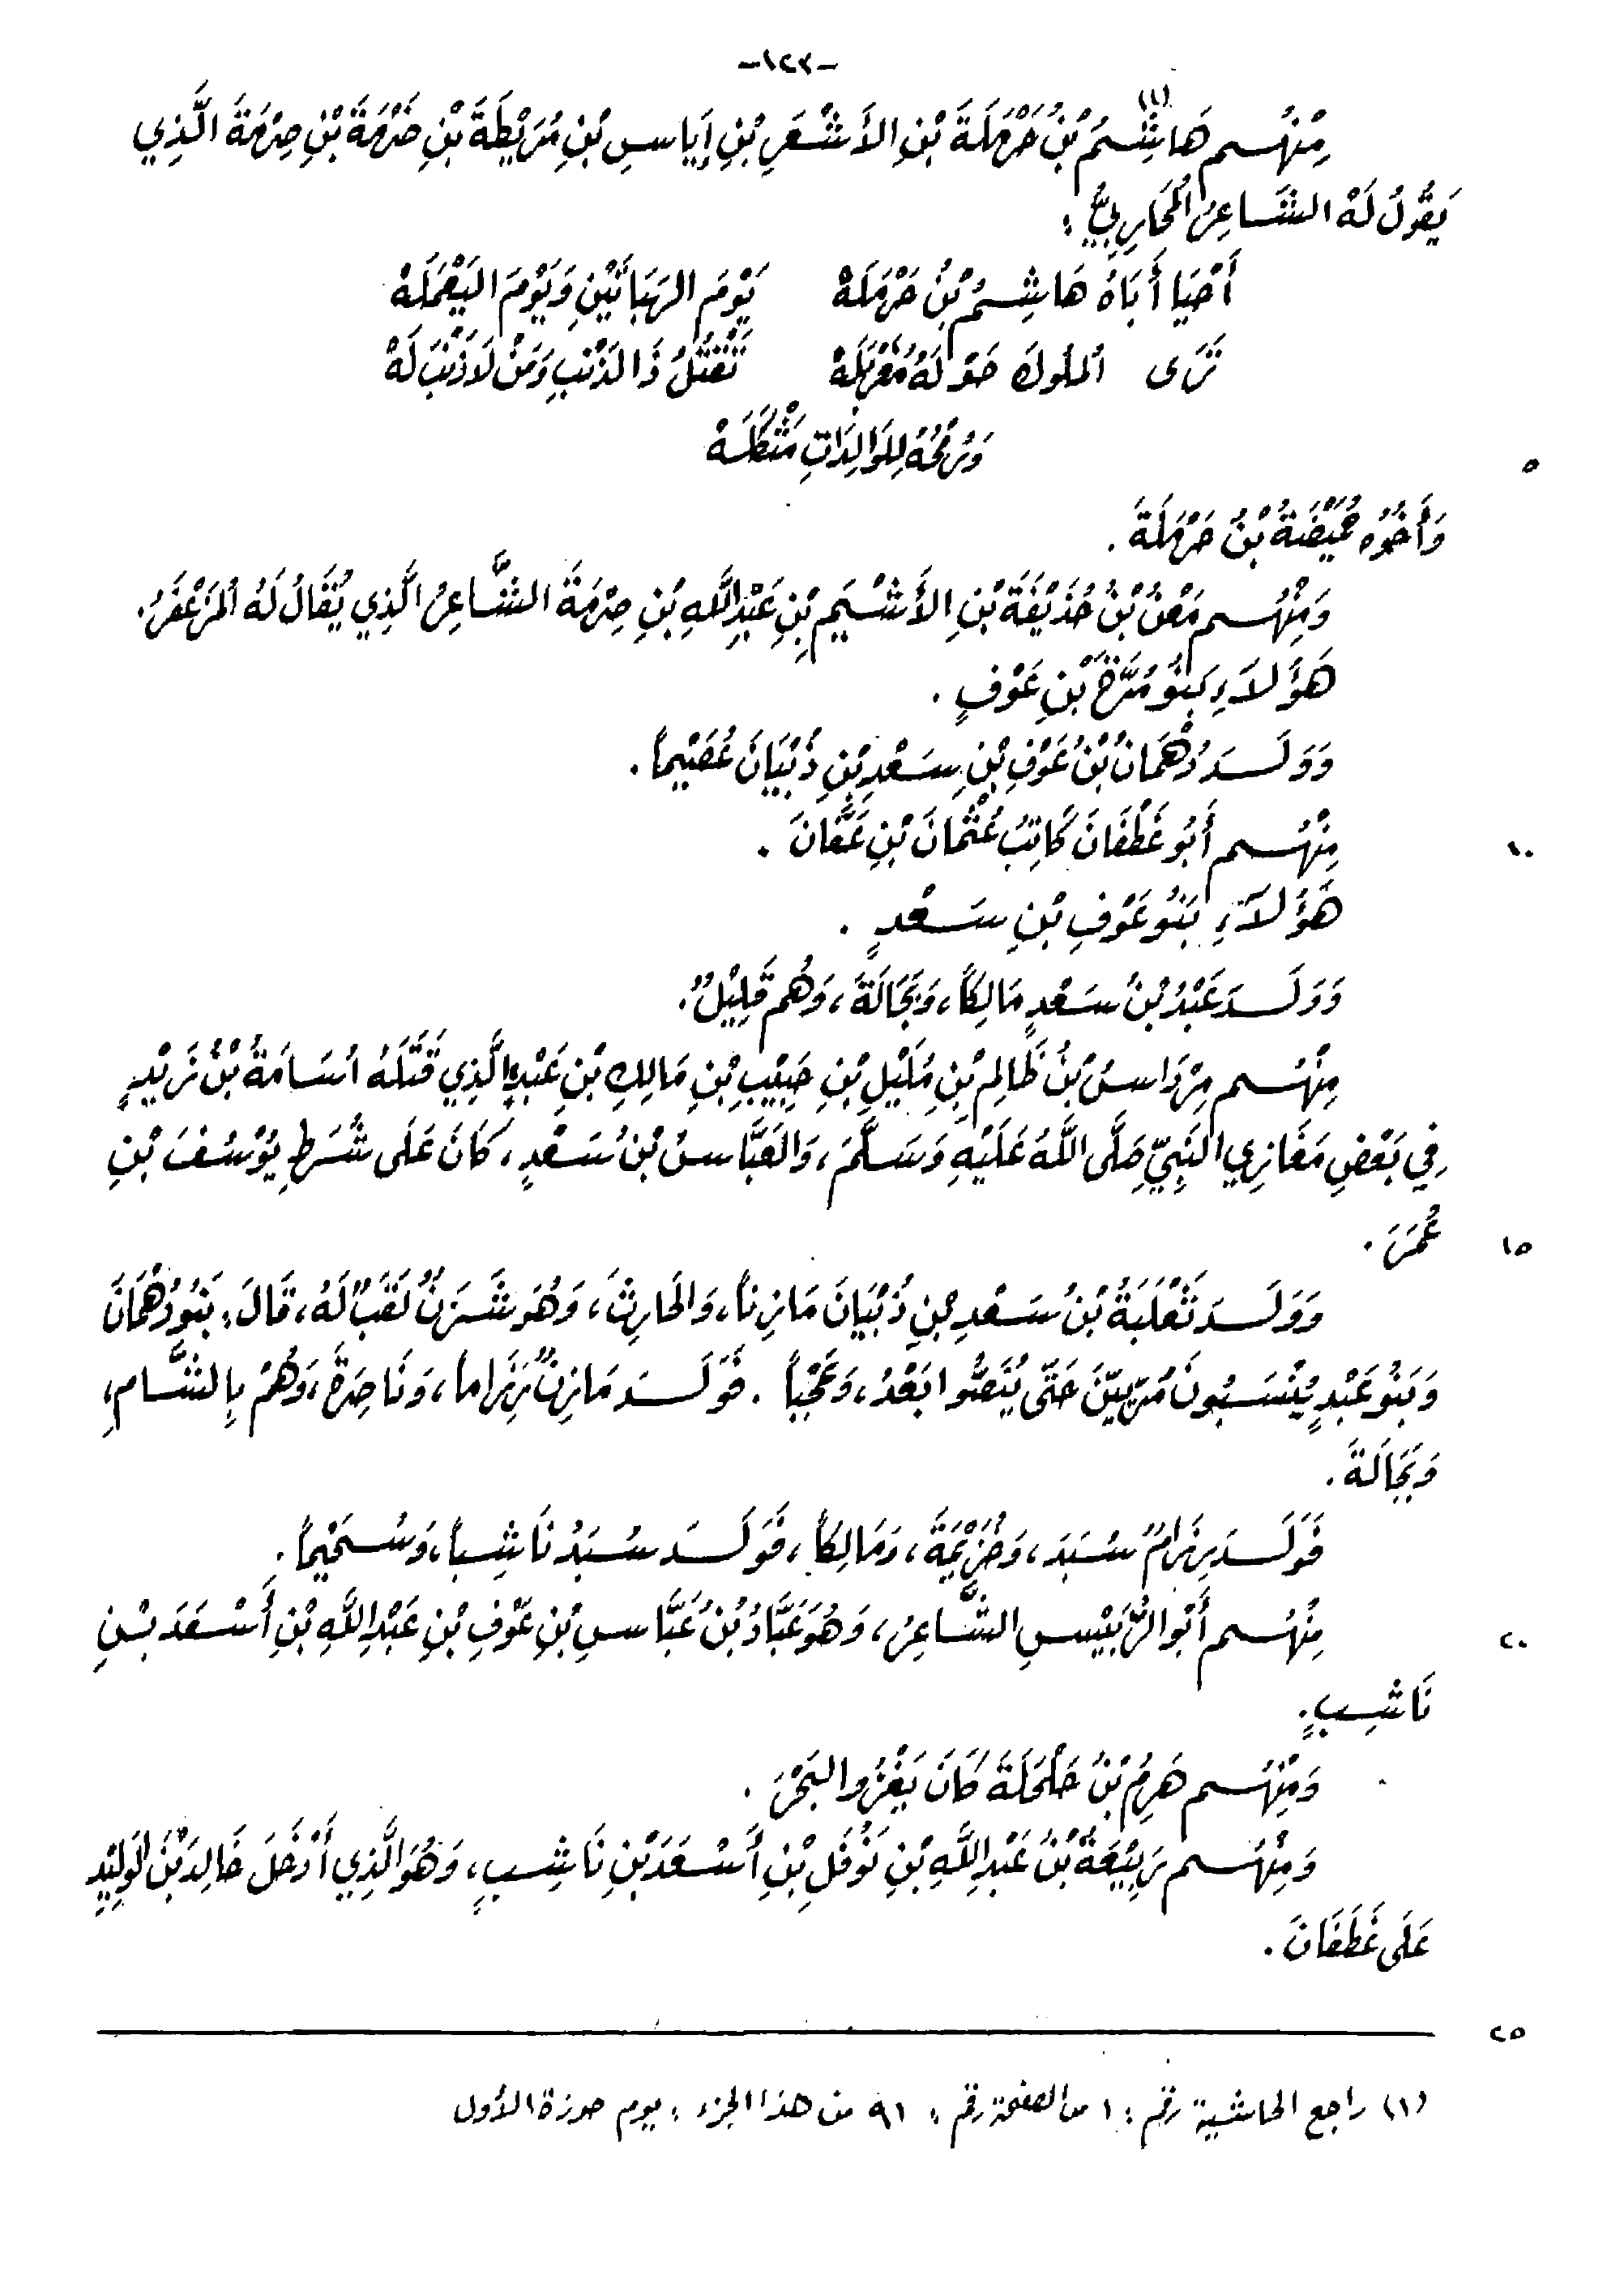 -١٢٢-
مِنْهُم هَاشِمُ(١) بْنُ حَرْمَلَةَ بْنِ الأَشْعَرِ بْنِ إيَاسِ بْنِ مُرَيْطَةَ بْنِ ضَرْمَةَ بْنِ صِرْمَةَ الَّذِي
يَقُولُ لَهُ الشَّاعِرُ المُحَارِبِيُّ :
أَحْيَا أَبَاهُ هَاشِمُ بْنُ حَرْمَلَهْ يَوْمَ الهَبَاتَيْنِ وَيَوْمَ اليَعْمَلَهْ
تَرَى المُلُوكَ حَوْلَهُ مُغَرْبَلَهْ تَقْتُلُ ذَا الذَّنْبِ وَمَنْ لاَ ذَنْبَ لَهْ
وَرُمْحُهُ لِلْوَالِدَاتِ مَثْكَلَهْ
٥
وَأَخُوهُ حُمَيْضَةُ بْنُ حَرْمَلَةَ .
وَمِنْهُم مَعْنُ بْنُ حُذَيْفَةَ بْنِ الأَشْيَمِ بْنِ عَبْدِ اللَّهِ بْنِ صِرْمَةَ الشَّاعِرُ الَّذِي يُقَالُ لَهُ المُزَعْفَرُ .
هَؤُلاَءِ بَنُو مُرَّةَ بْنِ عَوْفٍ .
وَوَلَدَ دُهْمَانُ بْنُ عَوْفِ بْنِ سَعْدِ بْنِ ذُبْيَانَ عُصَيْماً .
مِنْهُم أَبُو غَطَفَانَ كَاتِبُ عُثْمَانَ بْنِ عَفَّانَ .
١٠
هَؤُلاَءِ بَنُو عَوْفِ بْنِ سَعْدٍ .
وَوَلَدَ عَبْدُ بْنُ سَعْدٍ مَالِكاً ، وَبَجَالَةَ ، وَهُم قَلِيْلٌ .
مِنْهُم مِرْدَاسُ بْنُ ظَالِمِ بْنِ مُلَيْلِ بْنِ حَبِيْبِ بْنِ مَالِكِ بْنِ عَبْدٍ الَّذِي قَتَلَهُ اُسَامَةُ بْنُ زَيْدٍ
فِي بَعْضِ مَغَازِي النَّبِيِّ صَلَّى اللَّهُ عَلَيْهِ وَسَلَّمَ ، وَالعَبَّاسُ بْنُ سَعْدٍ ، كَانَ عَلَى شُرَطِ يُوْسُفَ بْنِ
عُمَرَ .
١٥
وَوَلَدَ ثَعْلَبَةُ بْنُ سَعْدِ بْنِ ذُبْيَانَ مَازِناً ، وَالحَارِثَ ، وَهُوَ شَزَنٌ لَقَبٌ لَهُ ، قَالَ : بَنُو دُهْمَانَ
وَبَنُو عَبْدٍ يُنْسَبُونَ مُرِّيِّيْنَ حَتَّى يُنَصُّوا بَعْدُ ، وَعَجْباً . فَوَلَدَ مَازِنٌ رِزَاماً ، وَنَاصِرَةَ ، وَهُمْ بِالشَّامِ ،
وَبَجَالَةَ .
فَوَلَدَ رِزَامٌ سُبَدَ ، وَخُزَيْمَةَ ، وَمَالِكاً ، فَوَلَدَ سُبَدُ نَاشِباً ، وَسُحَيْماً .
مِنْهُم أَبُو الرُّبَيْسِ الشَّاعِرُ ، وَهُوَ عَبَّادُ بْنُ عَبَّاسِ بْنِ عَوْفِ بْنِ عَبْدِ اللَّهِ بْنِ أَسْعَدَ بْنِ
٢٠
نَاشِبٍ .
وَمِنْهُم هَرِمُ بْنُ حَلْحَلَةَ كَانَ يَغْزُو البَحْرَ .
وَمِنْهُم رَبِيْعَةُ بْنُ عَبْدِ اللَّهِ بْنِ نَوْفَلِ بْنِ أَسْعَدَ بْنِ نَاشِبٍ ، وَهُوَ الَّذِي أَدْخَلَ خَالِدَ بْنَ الوَلِيْدِ
عَلَى غَطَفَانَ .
٢٥
(١) راجع الحاشية رقم : ١ من الصفحة رقم : ٩١ من هذا الجزء : يوم حوزة الأول